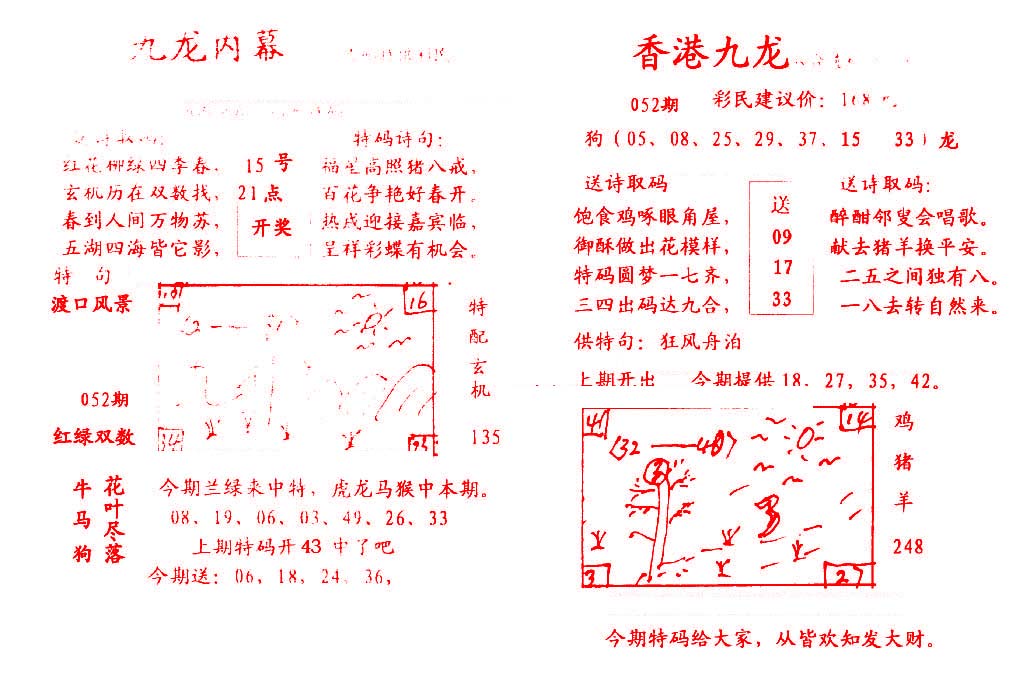 九龙内幕
特码诗句：
红花柳绿四季春，
玄机历在双数找，
春到人间万物苏，
五湖四海皆它影，
15 号
21 点
开奖
福星高照猪八戒，
百花争艳好春开。
热戌迎接嘉宾临，
呈祥彩蝶有机会。
特 句
渡口风景
16
特配玄机
052期
红绿双数
135
牛马狗
花叶尽落
今期兰绿来中特，虎龙马猴中本期。
08、19、06、03、49、26、33
上期特码开 43 中了吧
今期送：06、18、24、36，
香港九龙
052期
彩民建议价：168
狗（05、08、25、29、37、15 33）龙
送诗取码
饱食鸡啄眼角屋，
御酥做出花模样，
特码圆梦一七齐，
三四出码达九合，
送
09
17
33
送诗取码：
醉酣邻叟会唱歌。
献去猪羊换平安。
二五之间独有八。
一八去转自然来。
供特句：狂风舟泊
上期开出 今期提供 18、27，35，42。
41
14
鸡
猪
羊
248
3
27
今期特码给大家，从皆欢知发大财。